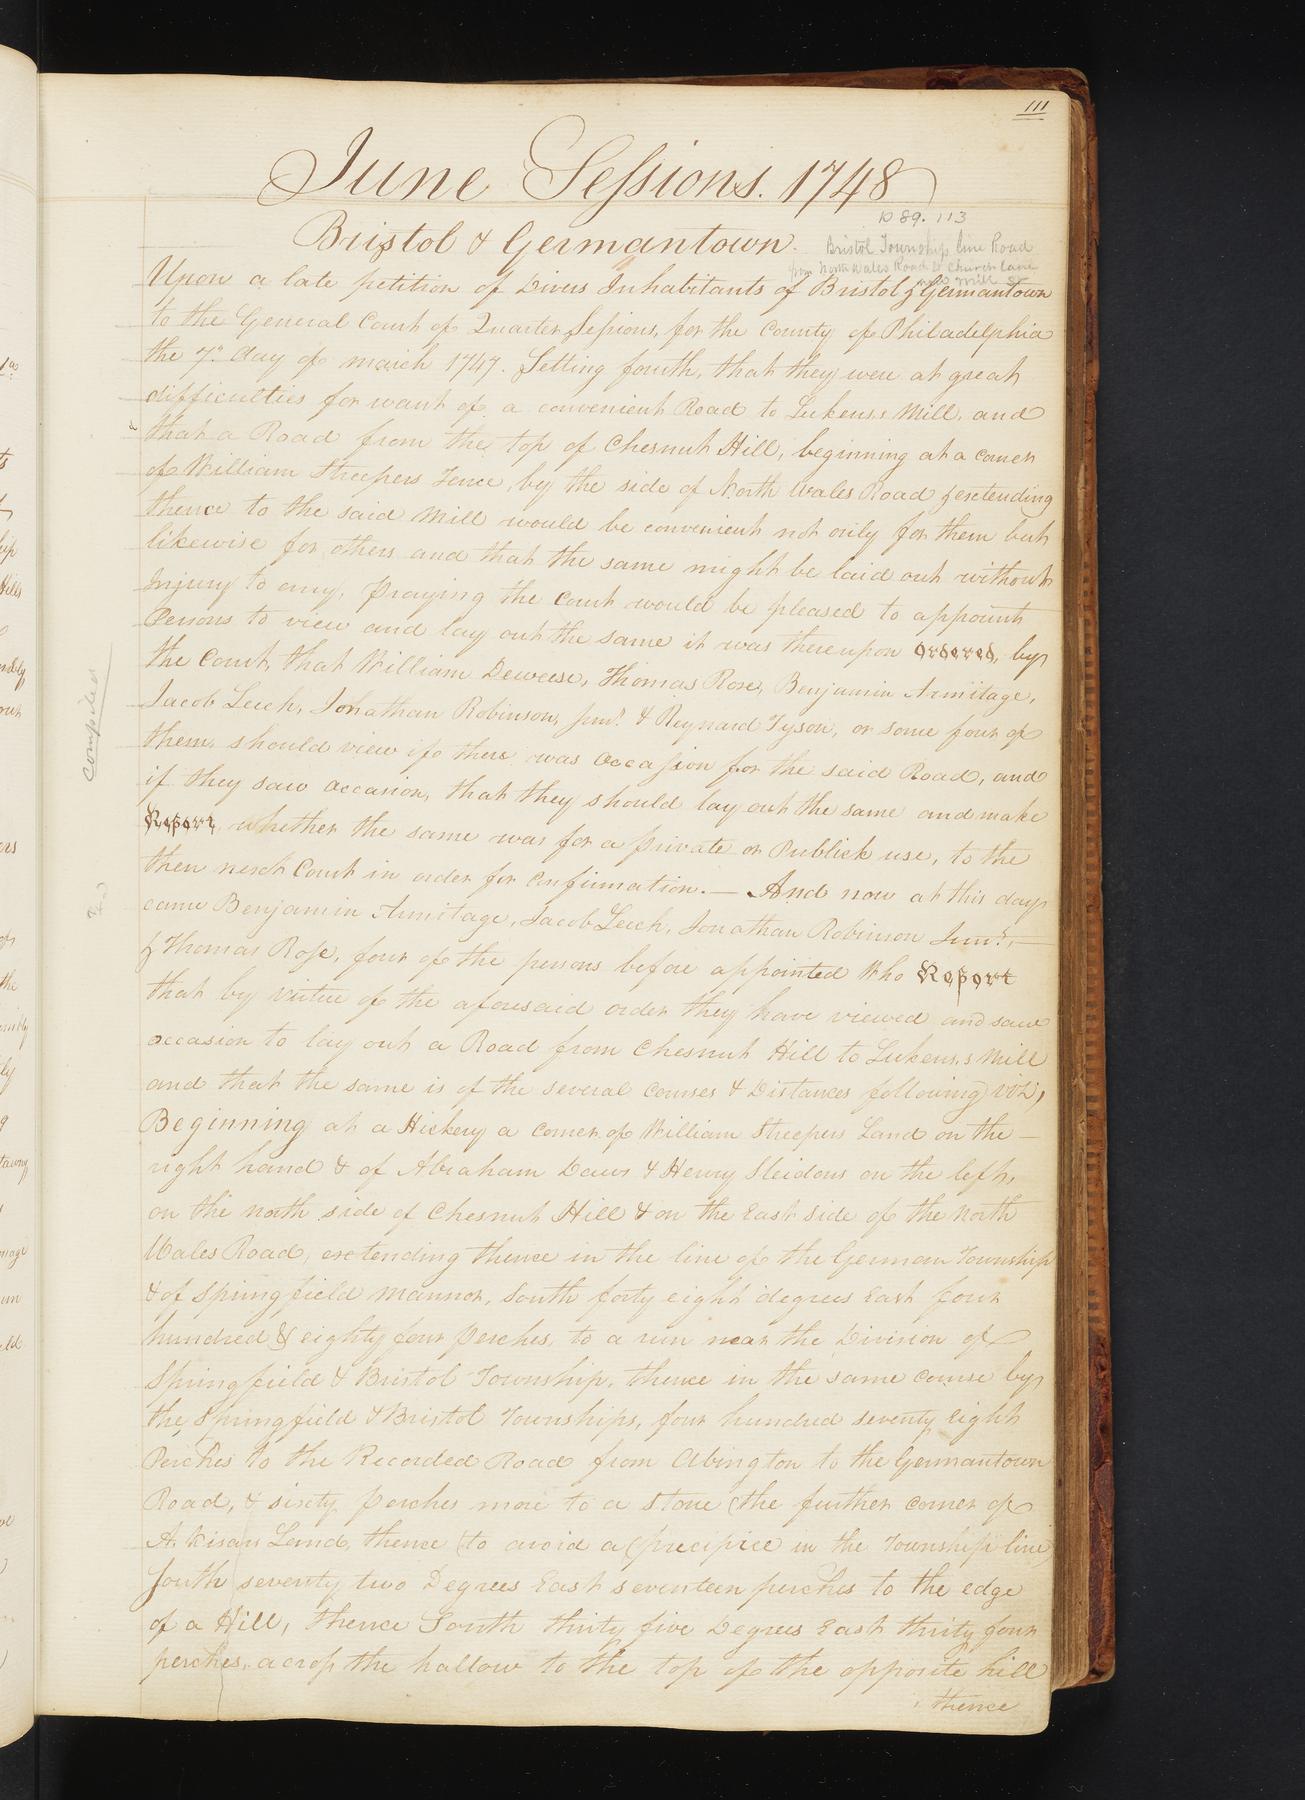 111
June Sessions. 1748
D 89. 113
Bristol & Germantown.
Bristol Township line Road
from North Wales Road to Church Lane
and Mill St
Upon a late petition of Divers Inhabitants of Bristol & Germantown
to the General Court of Quarter Sessions, for the County of Philadelphia
the 7th day of march 1747. Setting fourth, that they were at great
difficulties for want of a convenient Road to Lukens's Mill, and
that a Road from the top of Chesnut Hill, beginning at a corner
of William Streepers Fence, by the side of North Wales Road & extending
thence to the said Mill would be convenient not only for them but
likewise for others and that the same might be laid out without
Injury to any, Praying the Court would be pleased to appoint
Persons to view and lay out the same it was thereupon Ordered, by
the Court, that William Deweese, Thomas Rose, Benjamin Armitage,
Jacob Leech, Jonathan Robinson, junr. & Reynard Tyson, or some four of
them, should view if there was occasion for the said Road, and
if they saw occasion, that they should lay out the same and make
Report, whether the same was for a private or Publick use, to the
then next Court in order for Confirmation. — And now at this day
came Benjamin Armitage, Jacob Leech, Jonathan Robinson Junr., —
& Thomas Rose, four of the persons before appointed Who Report
that by virtue of the aforesaid order they have viewed and saw
occasion to lay out a Road from Chesnut Hill to Lukens,s Mill
and that the same is of the several courses & Distances following viz,
Beginning at a Hickery a corner of William Streepers Land on the —
right hand & of Abraham Daws & Henry Sleidons on the left,
on the north side of Chesnut Hill & on the East side of the North
Wales Road, extending thence in the line of the German Township
& of Springfield Mannor, South forty eight degrees East four
hundred & eighty four Perches, to a run near the Division of
Springfield & Bristol Township, thence in the same course by
the Springfield & Bristol Townships, four hundred seventy Eight
Perches to the Recorded Road from Abington to the Germantown
Road, & sixty perches more to a stone (the further corner of
A. Land, thence (to avoid a precipice in the Township line)
South seventy two Degrees East seventeen perches to the edge
of a Hill, thence South thirty five Degrees East thirty four
perches, across the hallow to the top of the opposite hill
thence
compiled